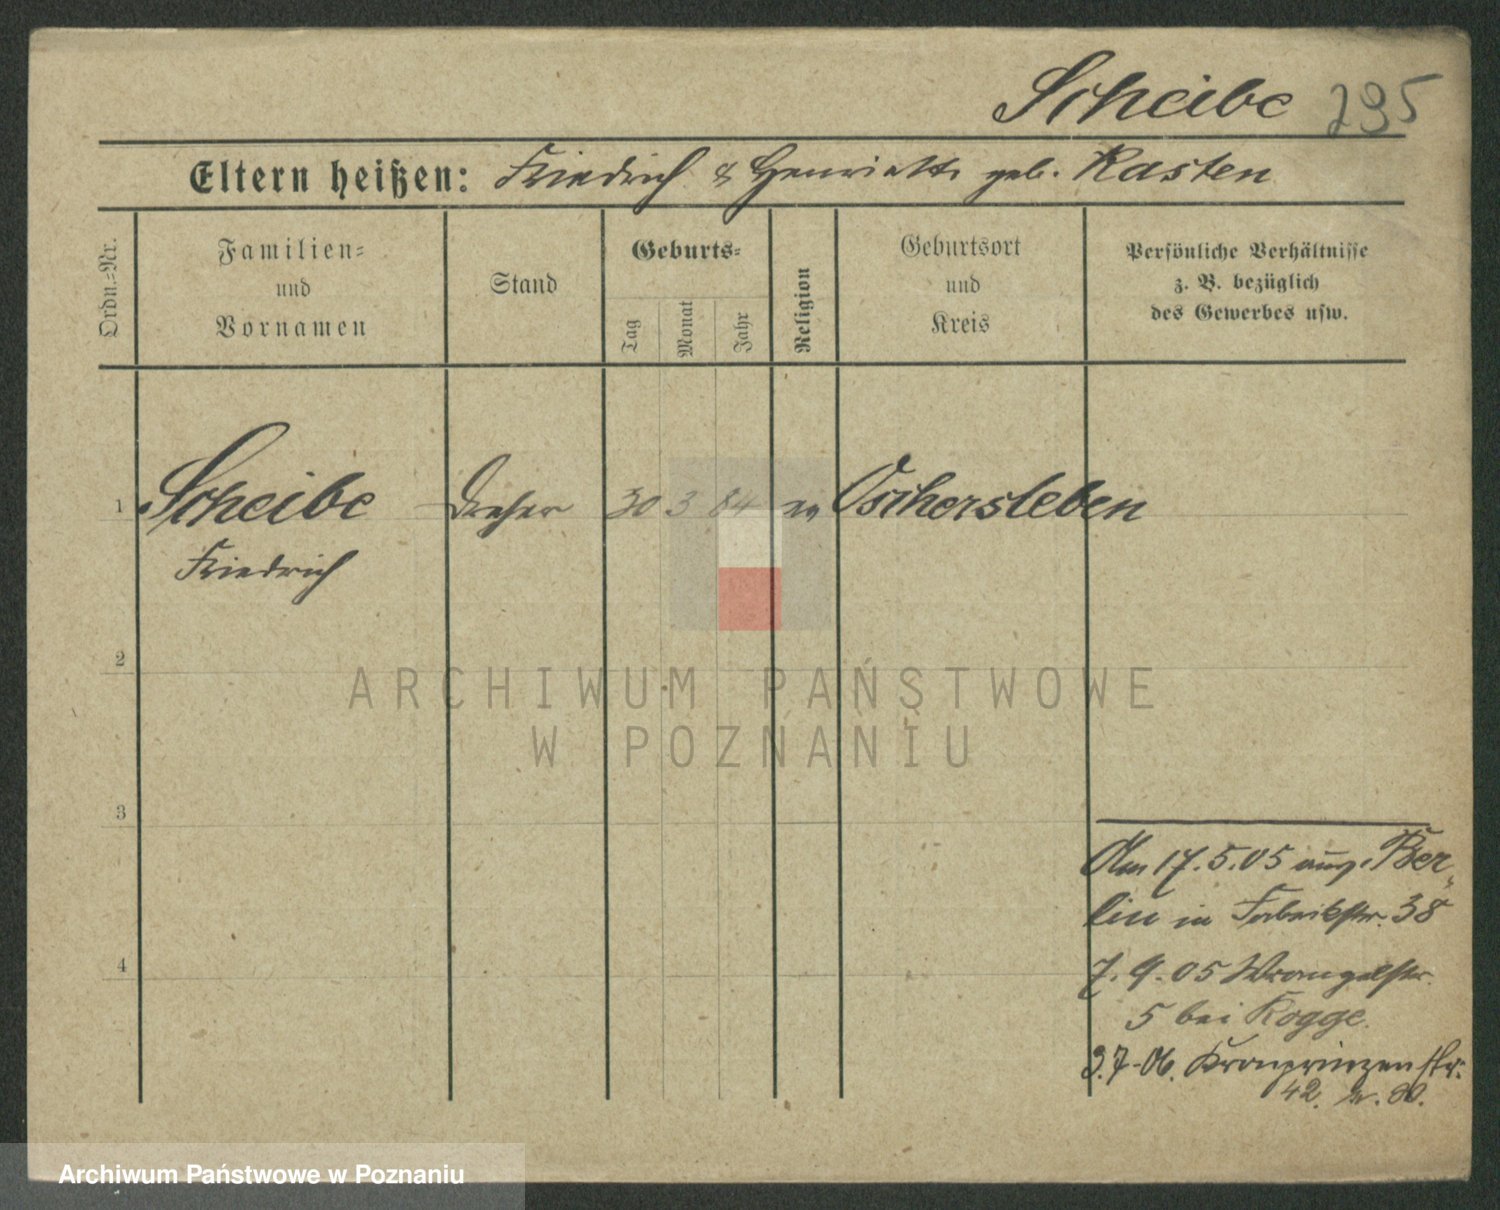 Scheibe 295
Eltern heißen: Friedrich & Henriette geb. Kasten
Ordn.=Nr.
Familien=
und
Vornamen
Stand
Geburts=
Tag
Monat
Jahr
Religion
Geburtsort
und
Kreis
Persönliche Verhältnisse
z. B. bezüglich
des Gewerbes usw.
1 Scheibe Dreher 30 3 84 ev Oschersleben
Friedrich
2
ARCHIWUM PAŃSTWOWE
W POZNANIU
3
Am 17.5.05 aus Ber-
lin in Fabrikstr. 38
4
7.9.05 Wrangelstr.
5 bei Rogge.
3.7.06. Kronprinzenstr.
42.
Archiwum Państwowe w Poznaniu